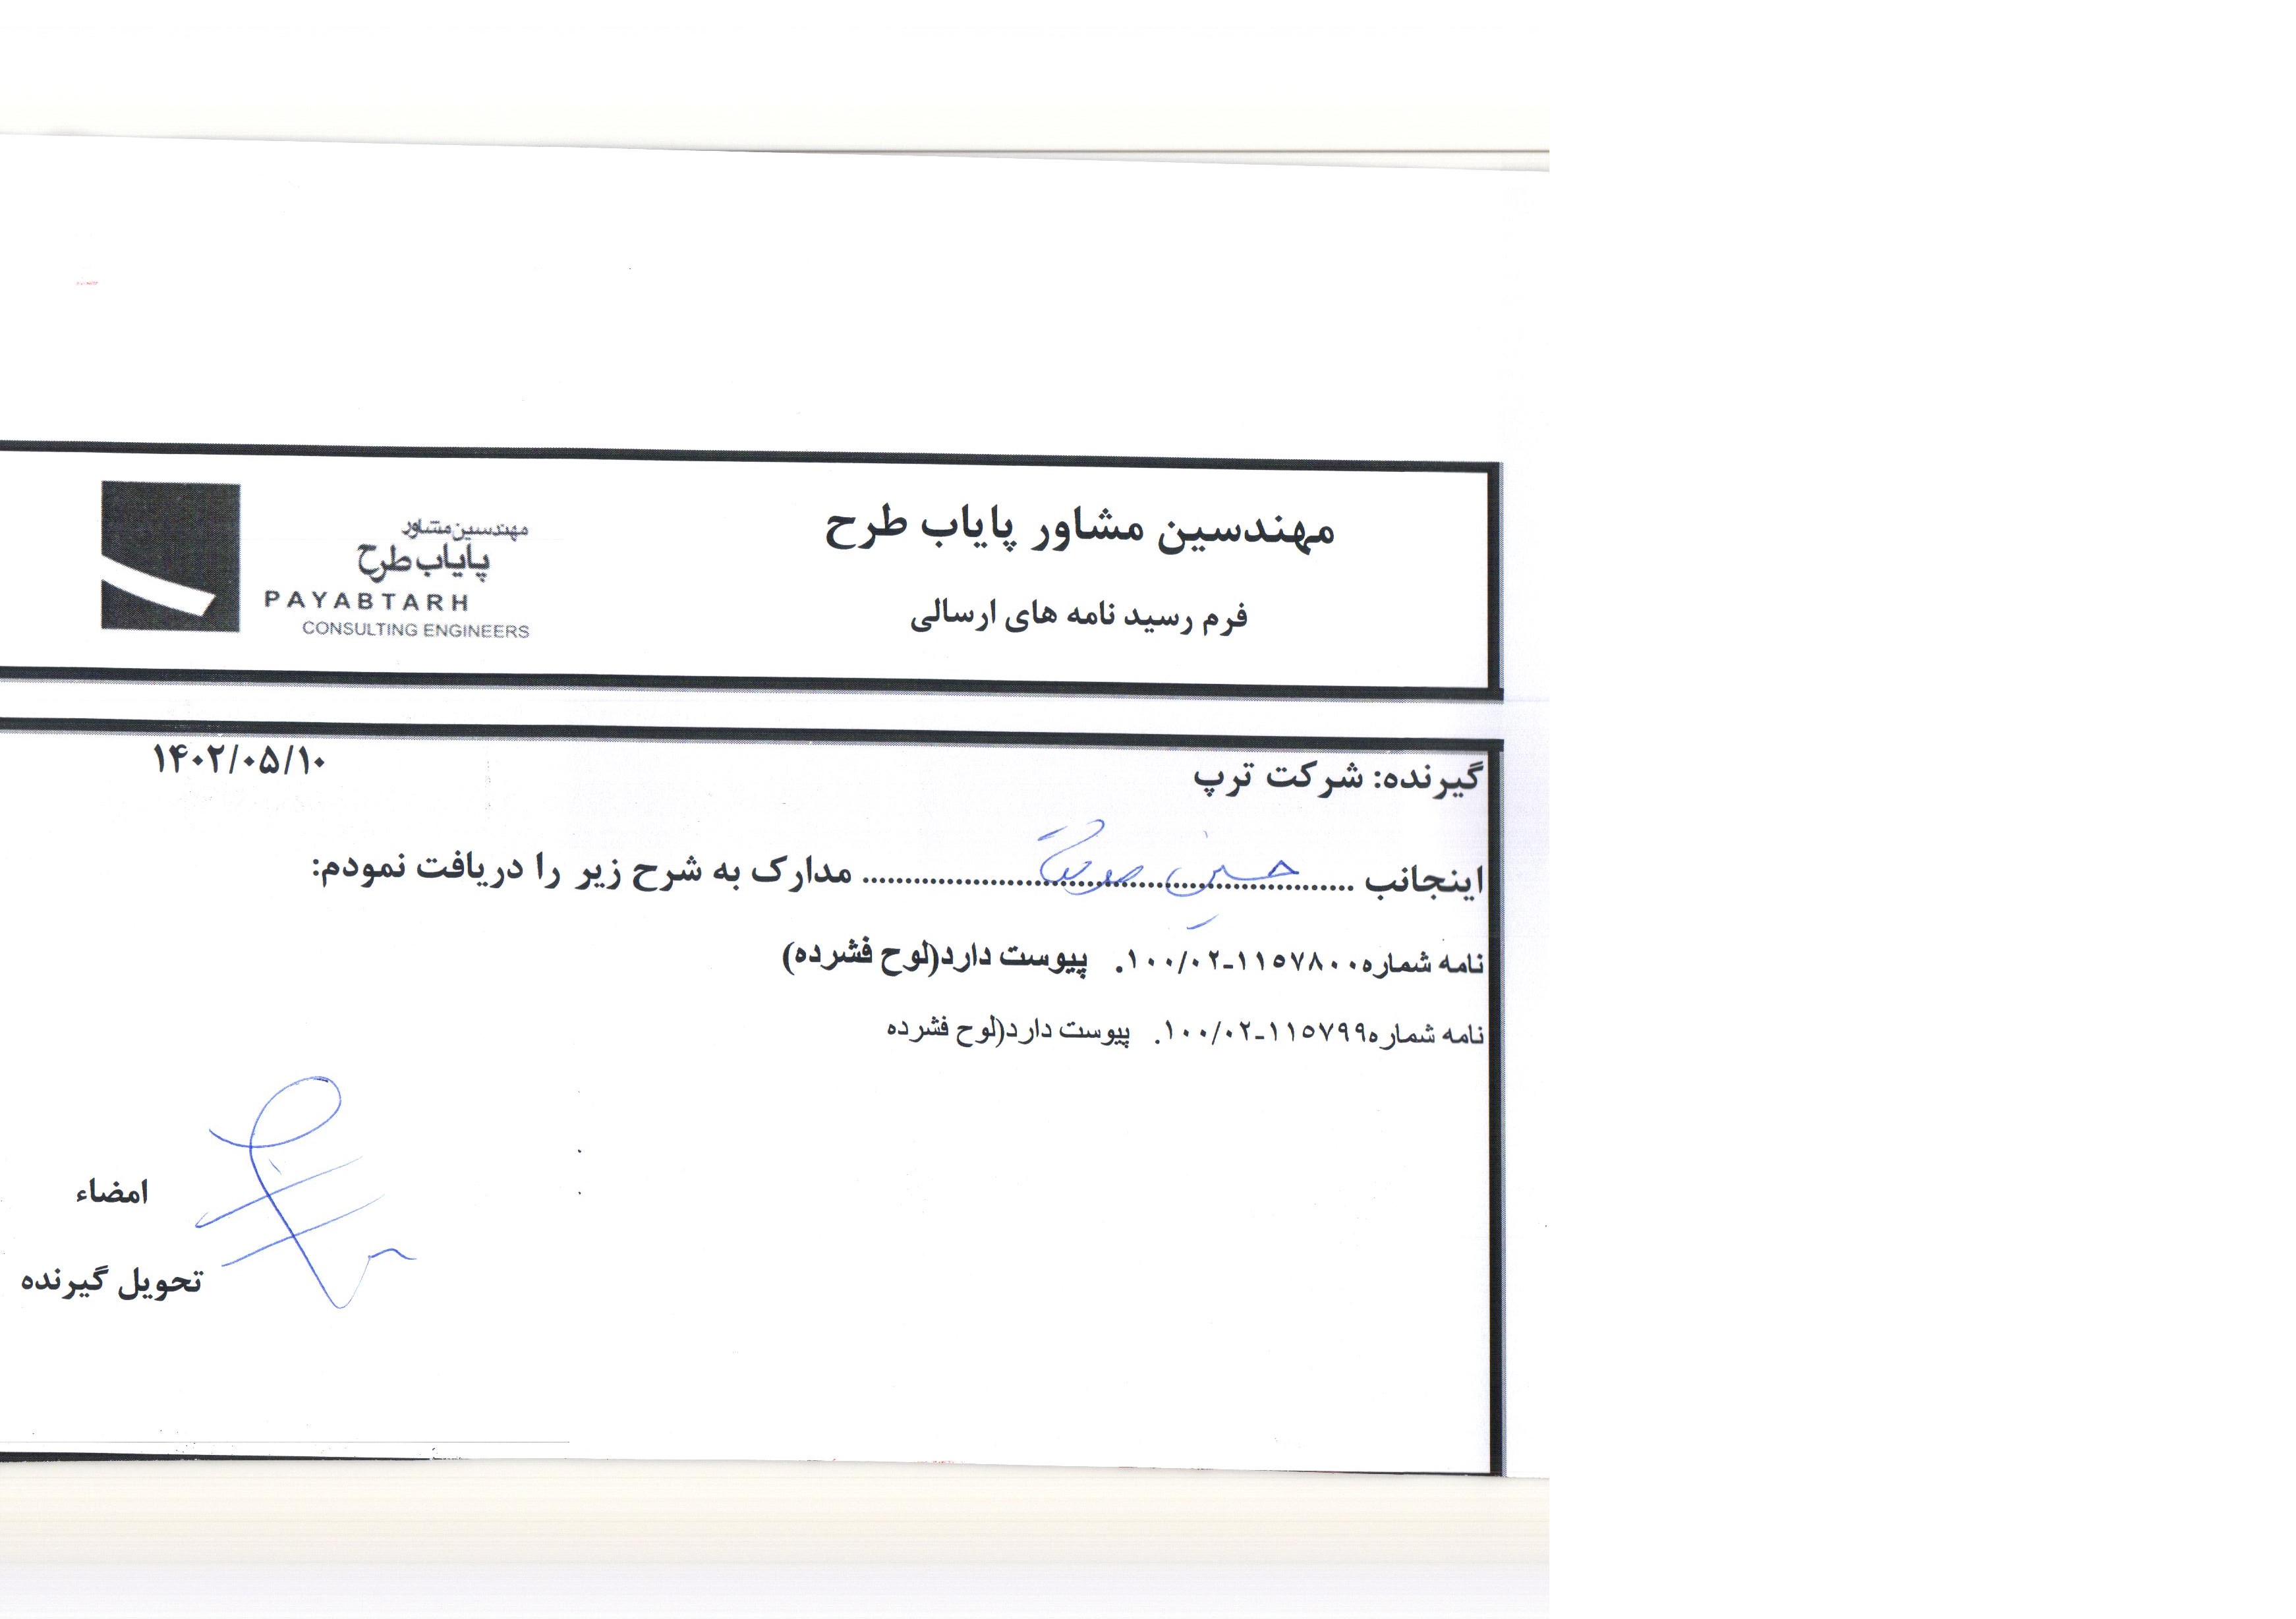 مهندسین مشاور پایاب طرح
فرم رسید نامه های ارسالی
مهندسین مشاور
پایاب طرح
PAYABTARH
CONSULTING ENGINEERS
گیرنده: شرکت ترپ
۱۴۰۲/۰۵/۱۰
اینجانب .......... حسین .......... مدارک به شرح زیر را دریافت نمودم:
نامه شماره۱۱۵۷۸۰۰-۱۰۰/۰۲. پیوست دارد(لوح فشرده)
نامه شماره۱۱۵۷۹۹-۱۰۰/۰۲. پیوست دارد(لوح فشرده
امضاء
تحویل گیرنده